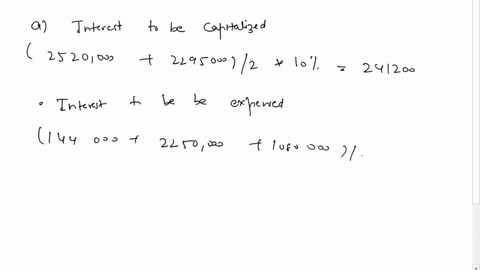 a) Interest to be capitalized
(2520,000 + 2295000)/2 * 10% = 241200
• Interest to be be expensed
(144 000 + 2250,000 + 1080 000)/.